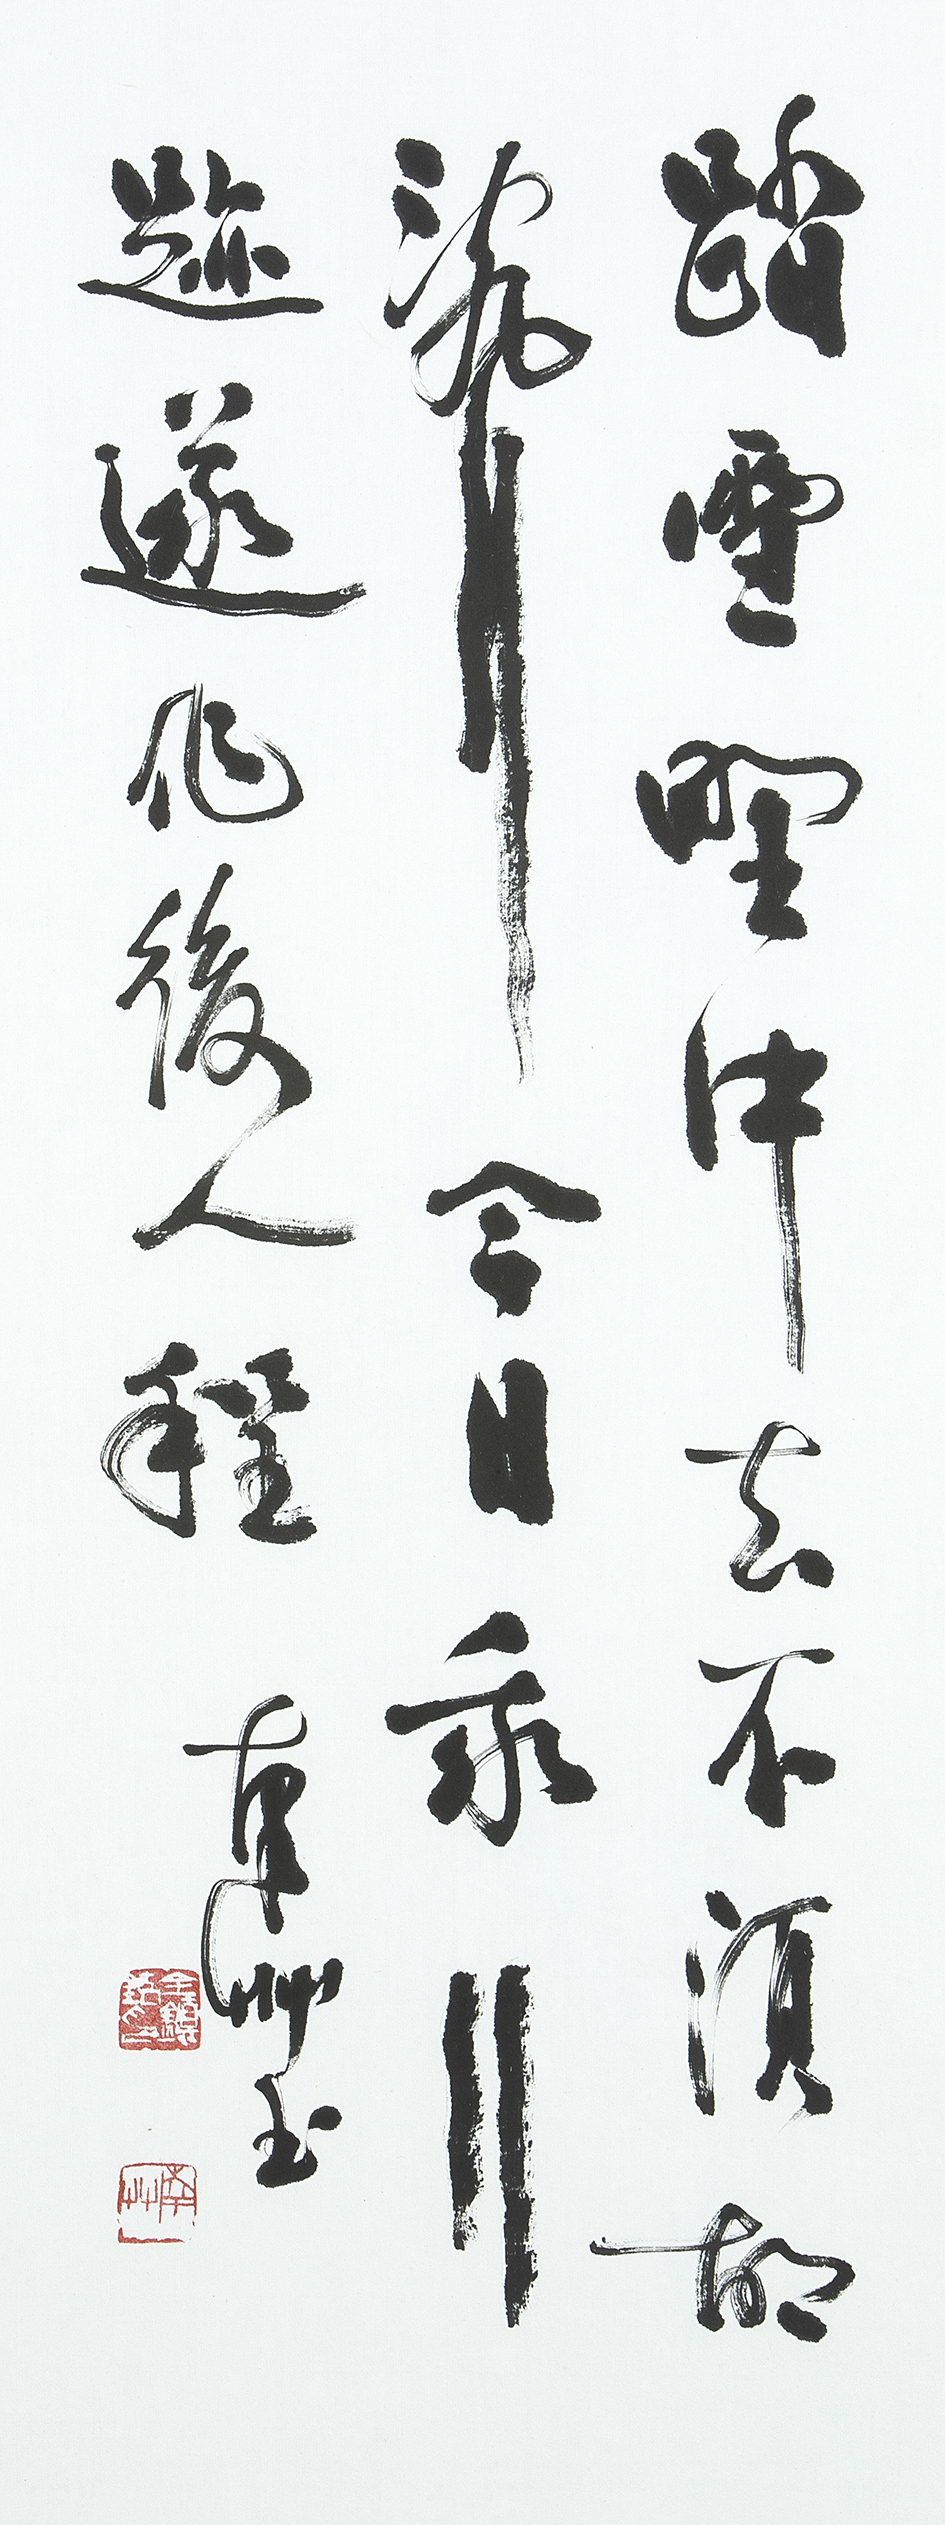 踏雪野中去不須胡
亂行今日我行
跡遂作後人程